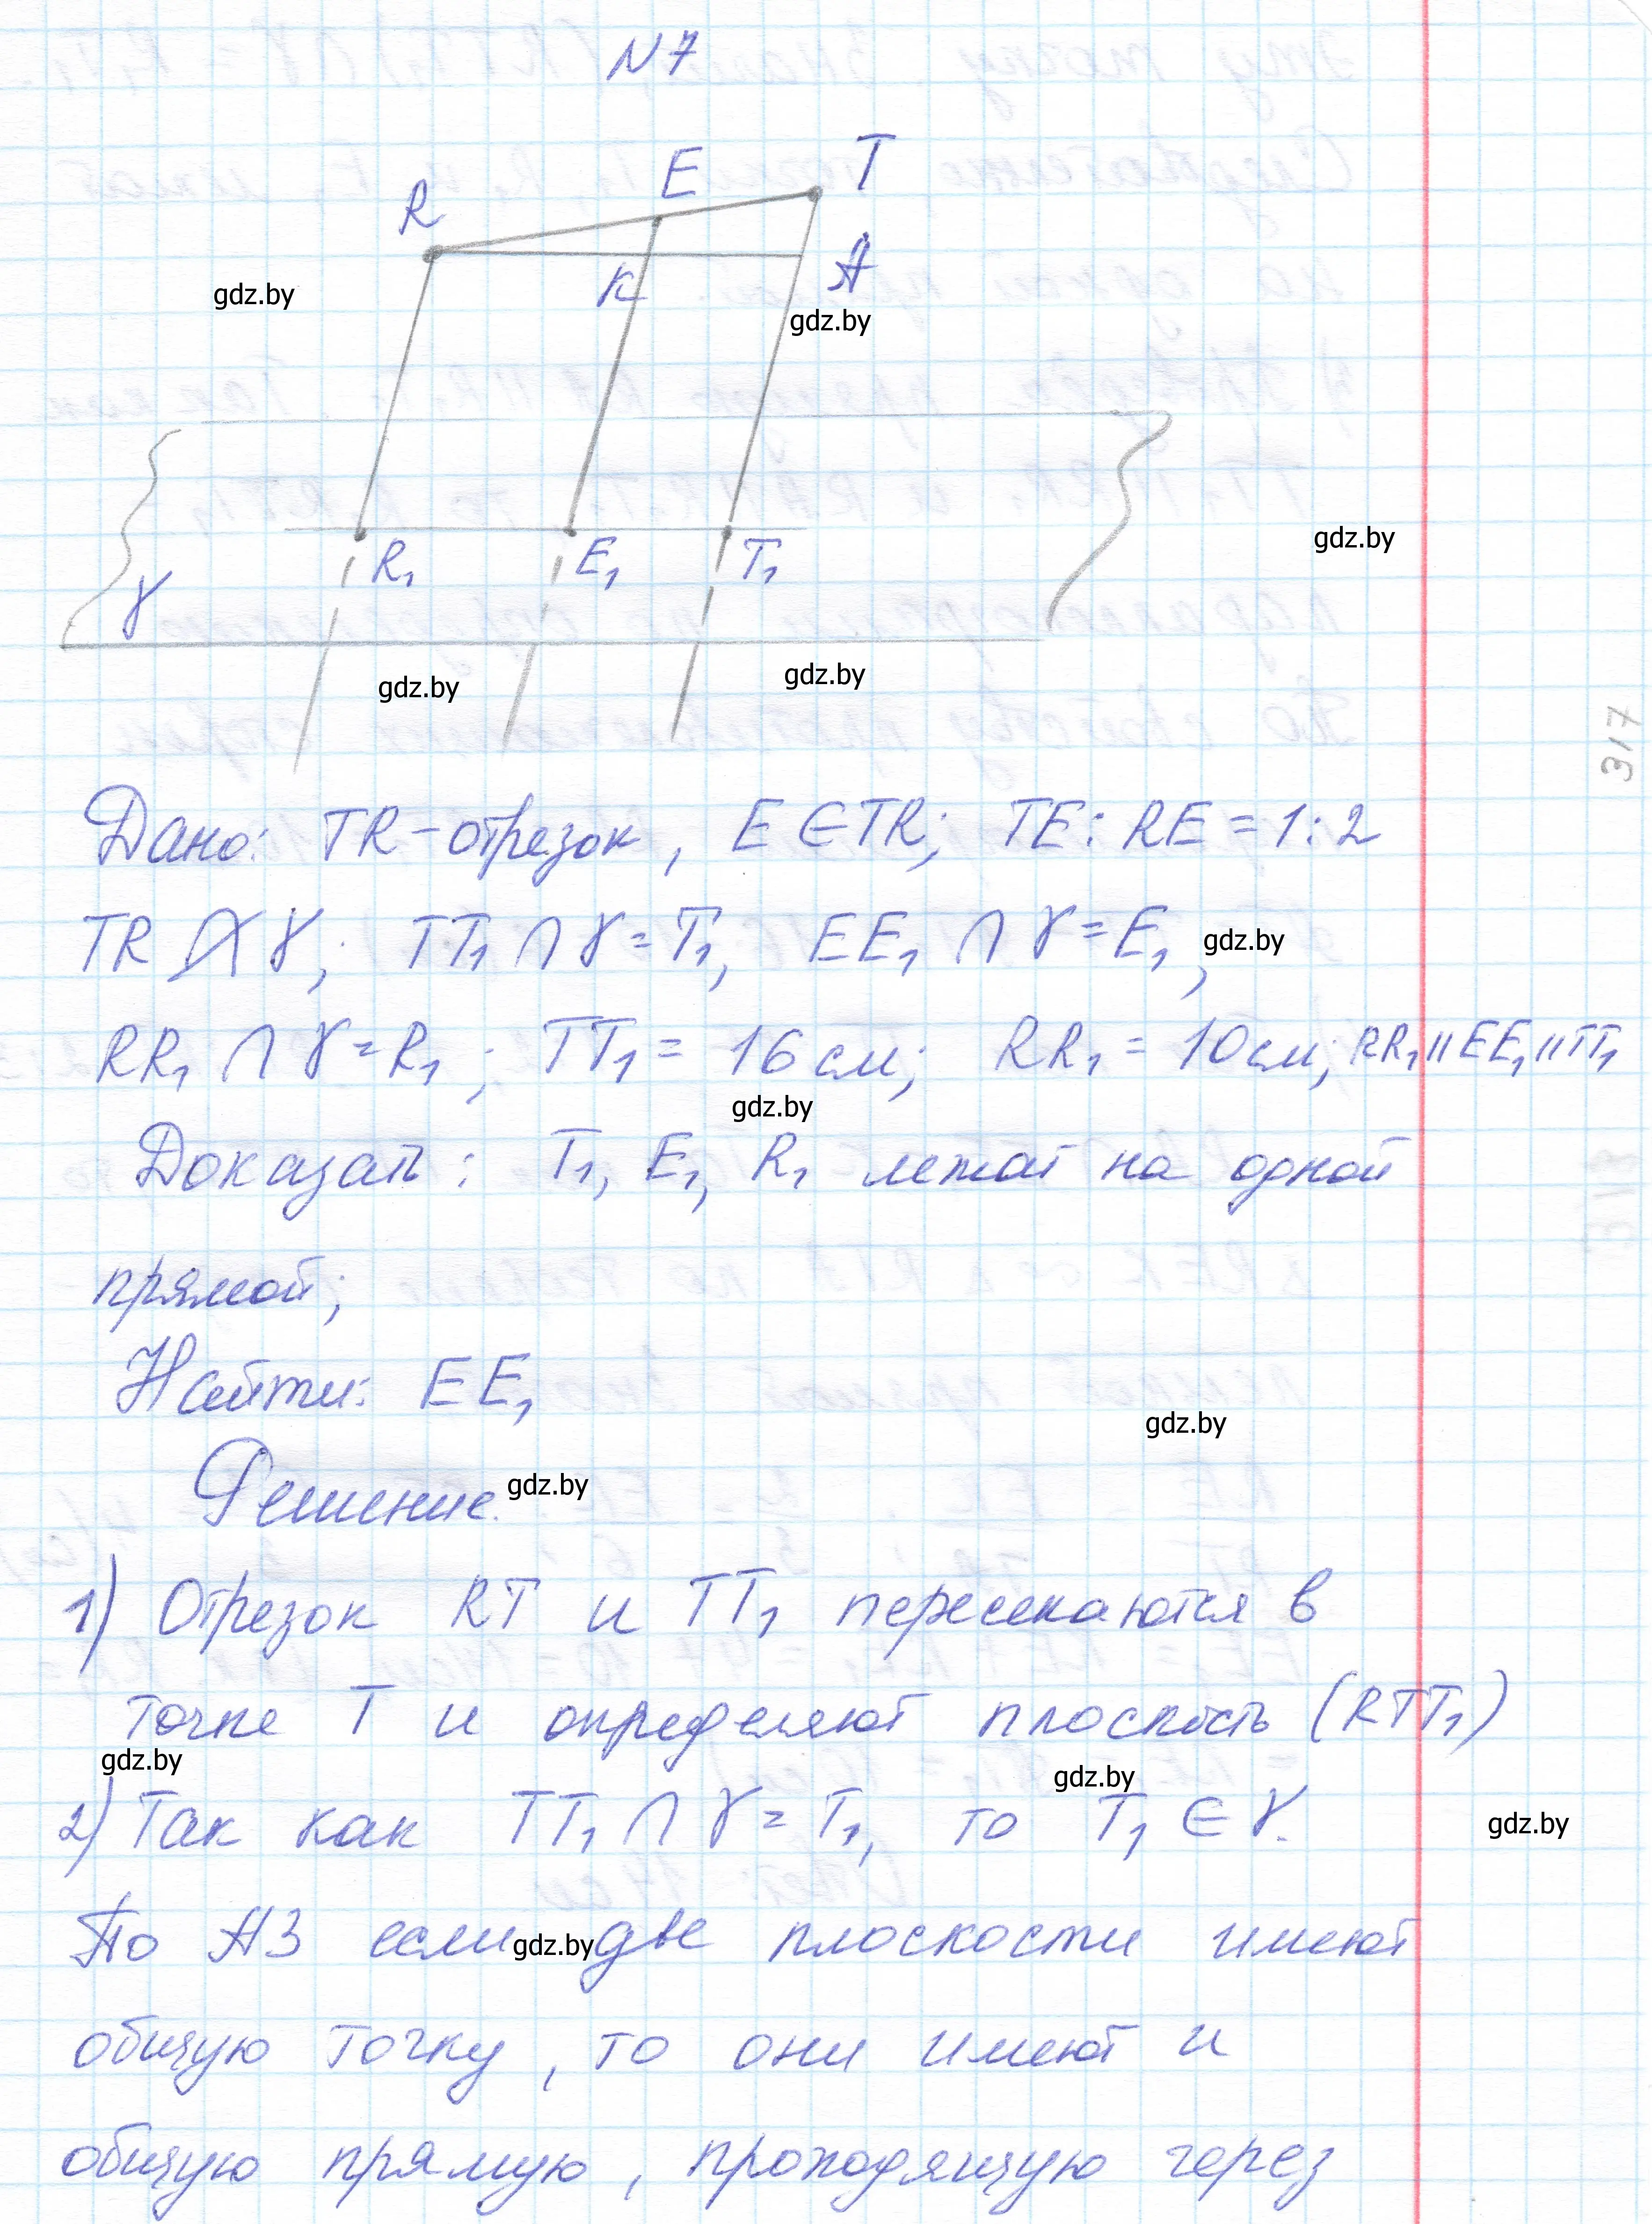 N7
R E T
K A
gdz.by
gdz.by
gdz.by
R₁ E₁ T₁
γ
gdz.by
gdz.by
317
Дано: TR – отрезок, E ∈ TR; TE : RE = 1 : 2
TR ⋂̸ γ; TT₁ ∩ γ = T₁, EE₁ ∩ γ = E₁,
gdz.by
RR₁ ∩ γ = R₁; TT₁ = 16 см; RR₁ = 10 см; RR₁ || EE₁ || TT₁
gdz.by
Доказать: T₁, E₁, R₁ лежат на одной
прямой;
Найти: EE₁
gdz.by
Решение.
gdz.by
1) Отрезок RT и TT₁ пересекаются в
точке T и определяют плоскость (RTT₁)
gdz.by
gdz.by
2) Так как TT₁ ∩ γ = T₁, то T₁ ∈ γ.
gdz.by
По А3 если две плоскости имеют
gdz.by
общую точку, то они имеют и
общую прямую, проходящую через